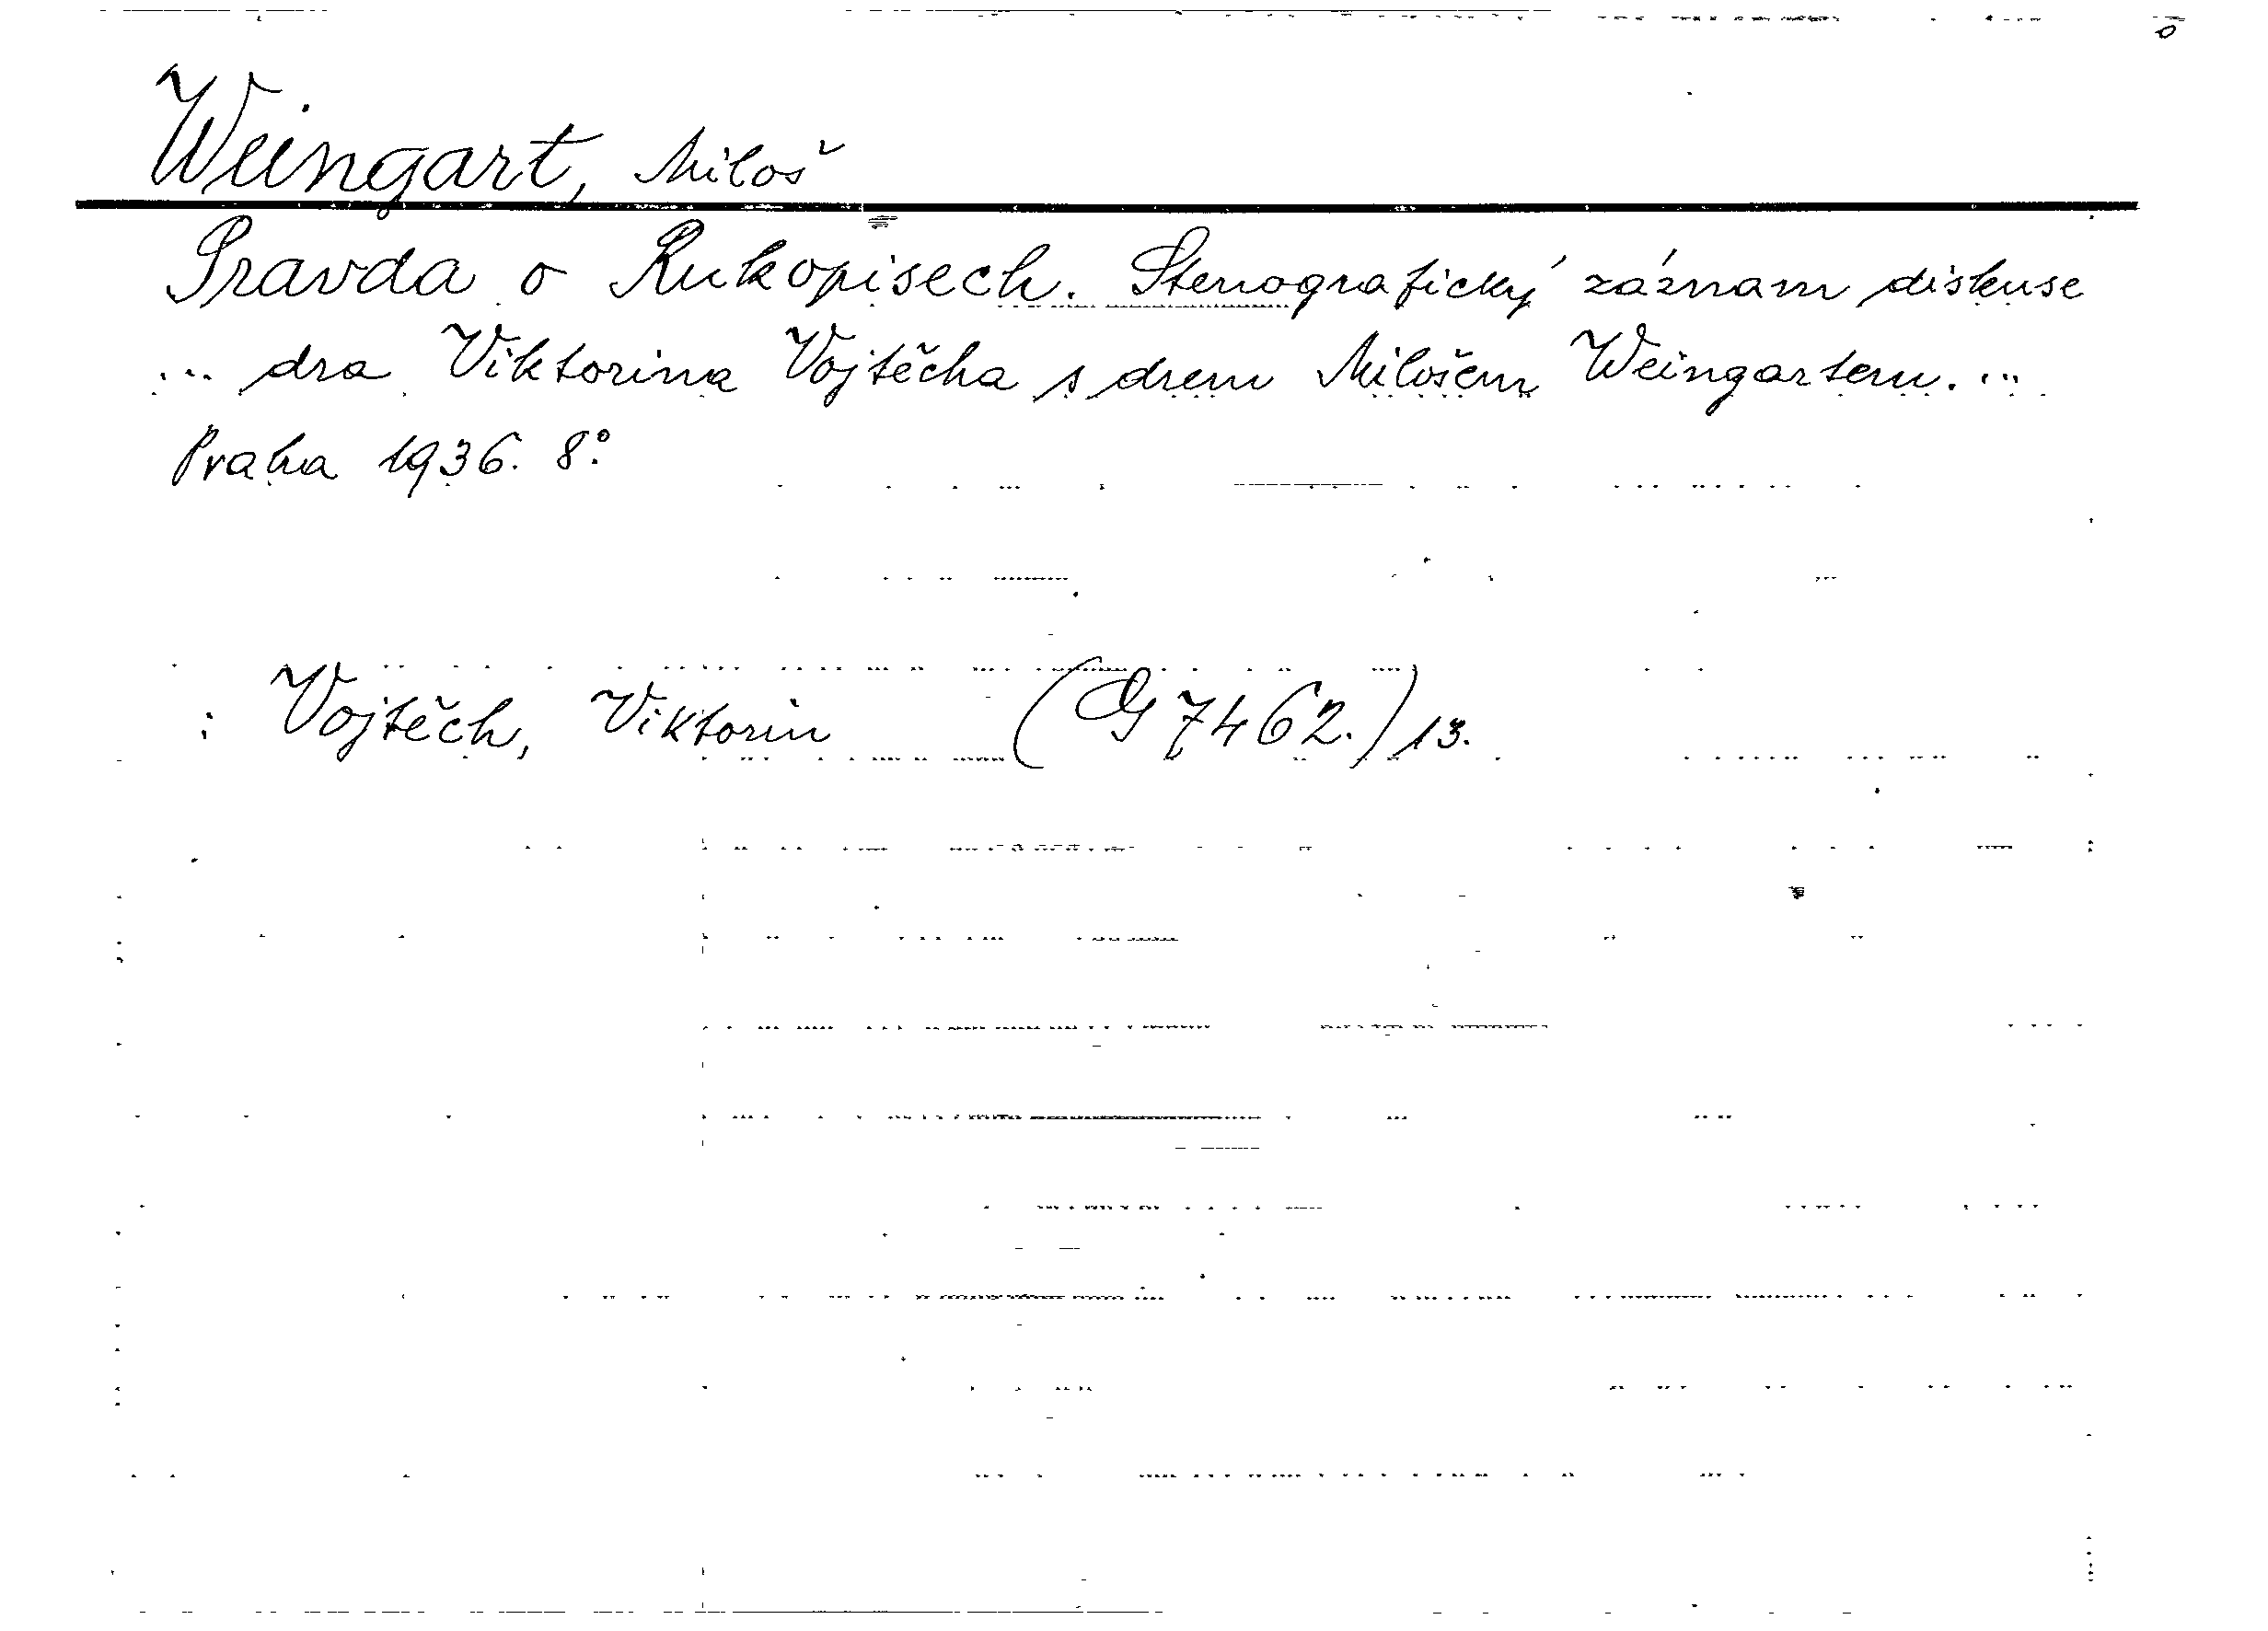 Weingart, Miloš
Pravda o Rukopisech. Stenografický záznam diskuse
... dra Viktorina Vojtěcha s drem Milošem Weingartem. ...
Praha 1936. 8°.
: Vojtěch, Viktorin (G 7462.) 13.